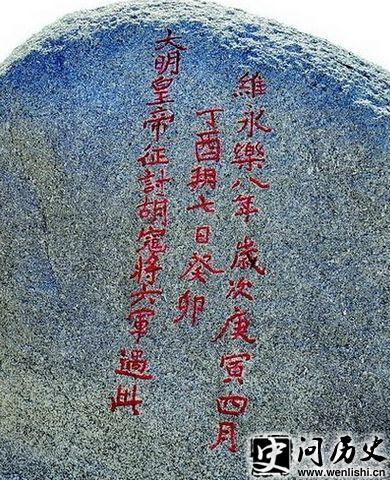 維永樂八年歲次庚寅四月
丁酉朔七日癸卯
大明皇帝征討胡寇將六軍過此
史问历史
www.wenlishi.cn